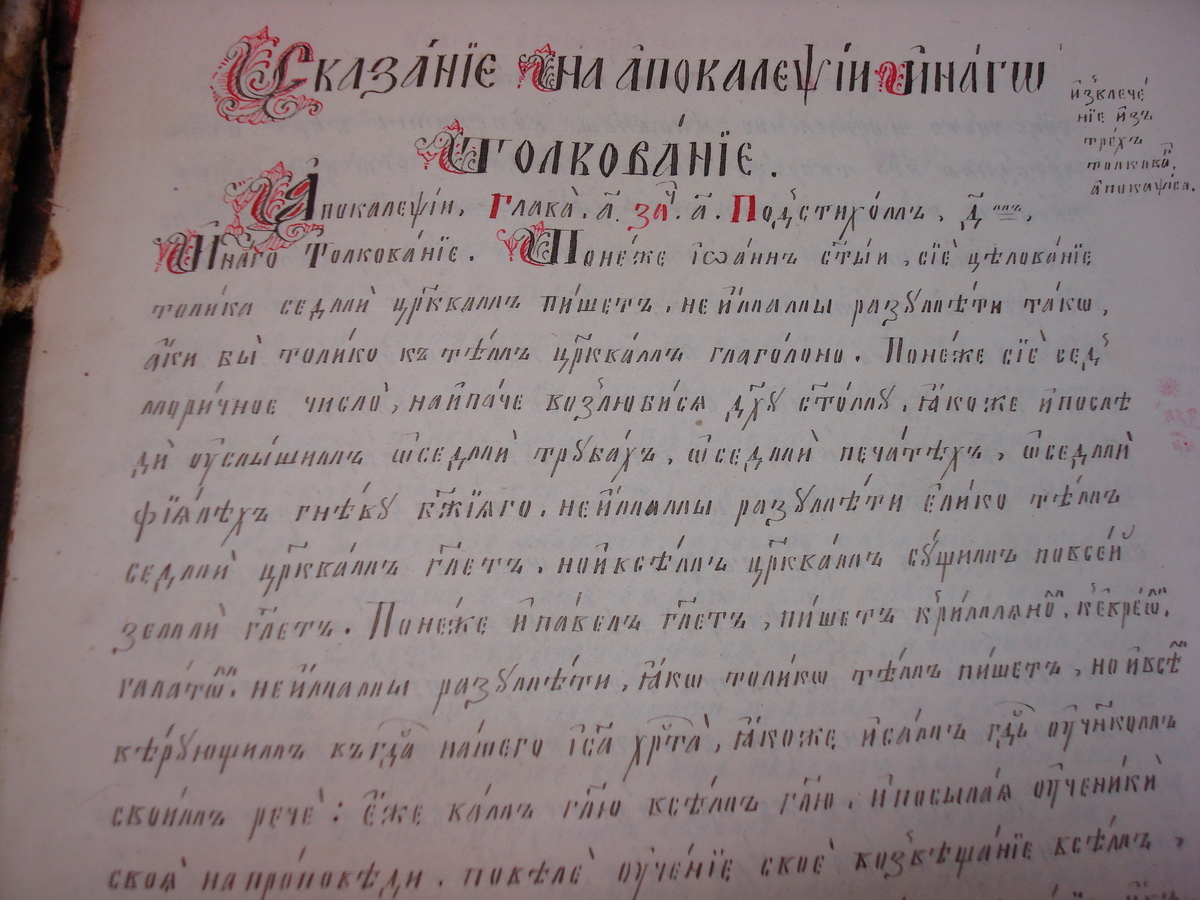 Сказа́нїе на а҆покалеѱі́и и҆на́гѡ
и҆звлече́
нїе и҆з̾
тре́хъ
толкова́.
а҆покаѱїса.
Толкова́нїе.
А҆покалеѱі́и. Глава̀. а҃. за҃. а҃. Под̾стихо́мъ, д҃
И҆на́го Толкова́нїе. Поне́же і҆ѡа́ннъ ст҃ы́и, сїѐ цѣлова́нїе
толи́ка седмѝ цр҃квамъ пи́шетъ, не и҆́мамы разꙋмѣ́ти та́кѡ,
а҆́ки бы̀ толи́ко къ тѣ́мъ цр҃ква́мъ глаго́лоно. Поне́же сїѐ сед̾
мори́чное число̀, наипа́че возлюби́ся дх҃ꙋ ст҃о́мꙋ. ꙗ҆́коже и҆ послѣ
дѝ оу҆слы́шимъ ѡ҆ седмѝ трꙋба́хъ, ѡ҆ седмѝ печа́тѣхъ, ѡ҆ седмѝ
фїѧ́лѣхъ гнѣ́вꙋ бж҃їѧго. не и҆́мамы разꙋмѣ́ти є҆ли́ко тѣ́мъ
седмѝ цр҃ква́мъ гл҃етъ. но и҆ всѣ́мъ цр҃ква́мъ сꙋ́щимъ по все́й
землѝ гл҃етъ. Поне́же и҆ па́велъ гл҃етъ, пи́шетъ к̾ри́млѧно, к̾е҆вре́ѡ,
галатѡ. не и҆́мамы разꙋмѣ́ти, ꙗ҆́кѡ толи́кѡ тѣ́мъ пи́шетъ, но и҆ всѣ̑
вѣ́рꙋющимъ въ гд҃а на́шего і҆с҃а хр҃та̀, ꙗ҆́коже и҆ са́мъ гд҃ь оу҆ч҃нкомъ
свои́мъ речѐ: є҆́же ва́мъ гл҃ю всѣ́мъ гл҃ю. и҆ посыла́ѧ оу҆ченикѝ
своѧ̀ на про́повѣди. повелѣ̀ оу҆че́нїе своѐ воз̾вѣща́нїе всѣ́мъ,